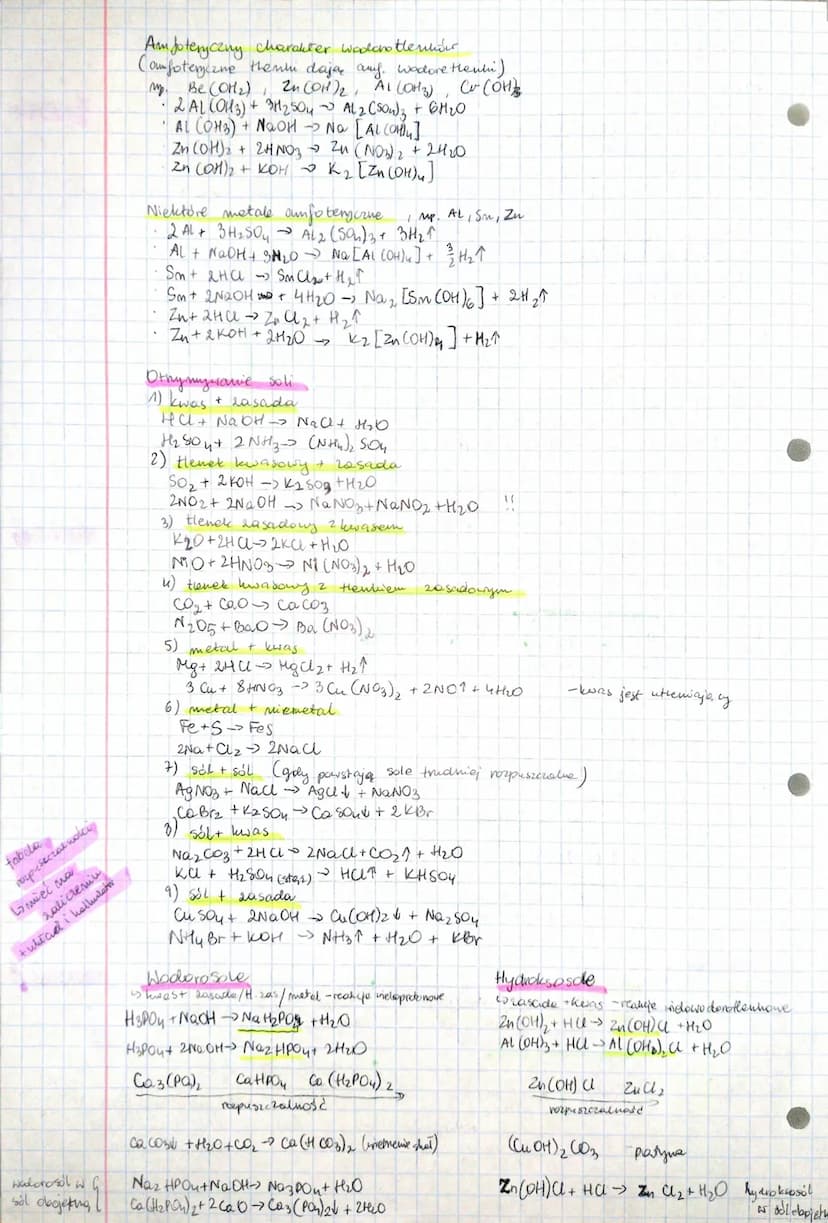 Amfoteryczny charakter wodorotlenków
(amfoteryczne tlenki dają amf. wodorotlenki)
np. Be(OH₂), Zn(OH)₂, Al(OH₃), Cr(OH)₃
· 2Al(OH₃) + 3H₂SO₄ → Al₂(SO₄)₃ + 6H₂O
· Al(OH₃) + NaOH → Na[Al(OH)₄]
Zn(OH)₂ + 2HNO₃ → Zn(NO₃)₂ + 2H₂O
Zn(OH)₂ + KOH → K₂[Zn(OH)₄]
Niektóre metale amfoteryczne, np. Al, Sn, Zn
· 2Al + 3H₂SO₄ → Al₂(SO₄)₃ + 3H₂↑
· Al + NaOH + 3H₂O → Na[Al(OH)₄] + 3/2H₂↑
· Sn + 2HCl → SnCl₂ + H₂↑
· Sn + 2NaOH + 4H₂O → Na₂[Sn(OH)₆] + 2H₂↑
· Zn + 2HCl → ZnCl₂ + H₂↑
· Zn + 2KOH + 2H₂O → K₂[Zn(OH)₄] + H₂↑
Otrzymywanie soli
1) kwas + zasada
HCl + NaOH → NaCl + H₂O
H₂SO₄ + 2NH₃ → (NH₄)₂SO₄
2) tlenek kwasowy + zasada
SO₂ + 2KOH → K₂SO₃ + H₂O
2NO₂ + 2NaOH → NaNO₃ + NaNO₂ + H₂O !!
3) tlenek zasadowy z kwasem
K₂O + 2HCl → 2KCl + H₂O
NiO + 2HNO₃ → Ni(NO₃)₂ + H₂O
4) tlenek kwasowy z tlenkiem zasadowym
CO₂ + CaO → CaCO₃
N₂O₅ + BaO → Ba(NO₃)₂
5) metal + kwas
Mg + 2HCl → MgCl₂ + H₂↑
3Cu + 8HNO₃ → 3Cu(NO₃)₂ + 2NO↑ + 4H₂O - kwas jest utleniający
6) metal + niemetal
Fe + S → FeS
2Na + Cl₂ → 2NaCl
7) sól + sól (gdy powstają sole trudniej rozpuszczalne)
AgNO₃ + NaCl → AgCl↓ + NaNO₃
CaBr₂ + K₂SO₄ → CaSO₄↓ + 2KBr
8) sól + kwas
Na₂CO₃ + 2HCl → 2NaCl + CO₂↑ + H₂O
KCl + H₂SO₄(stęż.) → HCl↑ + KHSO₄
9) sól + zasada
CuSO₄ + 2NaOH → Cu(OH)₂↓ + Na₂SO₄
NH₄Br + KOH → NH₃↑ + H₂O + KBr
tabela
rozpuszczalności
↳ mieć na
zaliczeniu
+ układ i kalkulator
Wodorosole
↳ kwas + zasada/tl. zas/metal - reakcje wieloprotonowe
H₃PO₄ + NaOH → NaH₂PO₄ + H₂O
H₃PO₄ + 2NaOH → Na₂HPO₄ + 2H₂O
Ca₃(PO₄)₂ CaHPO₄ Ca(H₂PO₄)₂
rozpuszczalność
CaCO₃↓ + H₂O + CO₂ → Ca(HCO₃)₂ (wietrzenie skał)
wodorosól w
sól obojętną
Na₂HPO₄ + NaOH → Na₃PO₄ + H₂O
Ca(H₂PO₄)₂ + 2CaO → Ca₃(PO₄)₂↓ + 2H₂O
Hydroksosole
↳ zasada + kwas - reakcje wielowodorotlenowe
Zn(OH)₂ + HCl → Zn(OH)Cl + H₂O
Al(OH)₃ + HCl → Al(OH)₂Cl + H₂O
Zn(OH)Cl ZnCl₂
rozpuszczalność
(CuOH)₂CO₃ patyna
Zn(OH)Cl + HCl → ZnCl₂ + H₂O hydroksosól
w sól obojętn